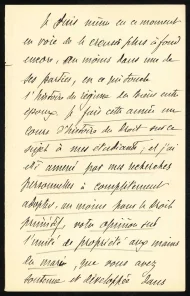 Je suis même en ce moment
en voie de le creuser plus à fond
encore, au moins dans une de
ses parties, en ce qui touche
l'histoire du régime des biens entre
époux. Je fais cette année un
cours d'histoire du Droit sur ce
sujet à mes étudiants, et j'ai
été amené par mes recherches
personnelles à complètement
adopter, au moins pour le Droit
primitif, votre opinion sur
l'unité de propriété aux mains
du mari, que vous avez
soutenue et développée dans